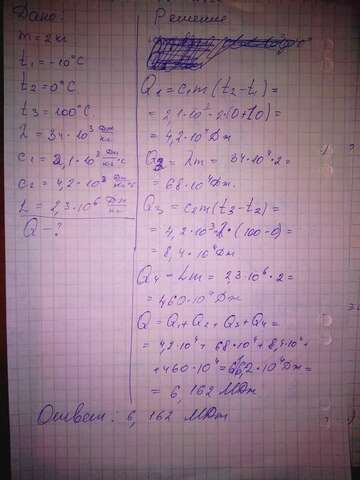 Дано:
m = 2 кг
t₁ = -10°C
t₂ = 0°C
t₃ = 100°C
λ = 34·10³ Дж/кг
c₁ = 2,1·10³ Дж/кг·°C
c₂ = 4,2·10³ Дж/кг·°C
L = 2,3·10⁶ Дж/кг
Q - ?
Решение
Q₁ = c₁m(t₂-t₁) =
= 2,1·10³·2·(0+10) =
= 4,2·10⁴ Дж
Q₂ = λm = 34·10⁴·2 =
= 68·10⁴ Дж.
Q₃ = c₂m(t₃-t₂) =
= 4,2·10³·2·(100-0) =
= 8,4·10⁴ Дж
Q₄ = Lm = 2,3·10⁶·2 =
= 460·10⁴ Дж
Q = Q₁ + Q₂ + Q₃ + Q₄ =
= 4,2·10⁴ + 68·10⁴ + 8,4·10⁴ +
+ 460·10⁴ = 616,2·10⁴ Дж =
= 6,162 МДж
Ответ: 6,162 МДж